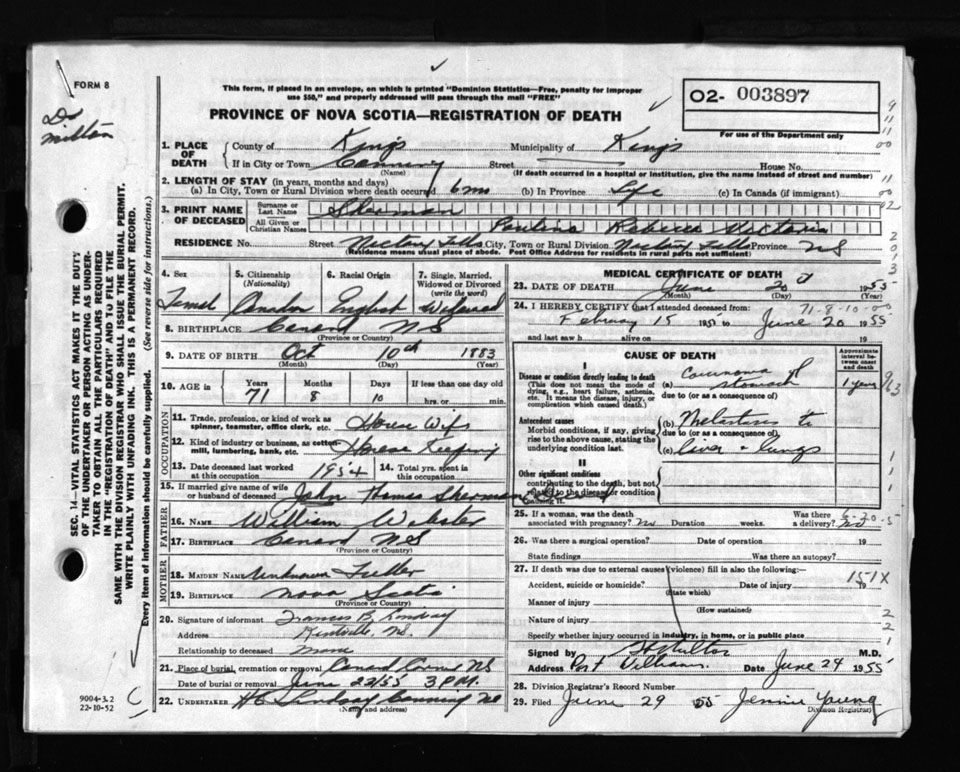 FORM 8
This form, if placed in an envelope, on which is printed "Dominion Statistics—Free, penalty for improper
use $50," and properly addressed will pass through the mail "FREE"
O2- 003897
For use of the Department only
Dr
Milton
PROVINCE OF NOVA SCOTIA—REGISTRATION OF DEATH
1. PLACE OF DEATH County of Kings Municipality of Kings
If in City or Town Canning Street House No.
(Name) (If death occurred in a hospital or institution, give the name instead of street and number)
2. LENGTH OF STAY (in years, months and days)
(a) In City, Town or Rural Division where death occurred 6 m (b) In Province Life (c) In Canada (if immigrant)
3. PRINT NAME OF DECEASED Surname or Last Name Sherman
All Given or Christian Names Paulina Rebecca Victoria
RESIDENCE No. Street Nictaux Falls City, Town or Rural Division Nictaux Falls Province NS
(Residence means usual place of abode. Post Office Address for residents in rural parts not sufficient)
4. Sex 5. Citizenship (Nationality) 6. Racial Origin 7. Single, Married, Widowed or Divorced (write the word)
Femal Canadian English Widowed
8. BIRTHPLACE Canard N S
(Province or Country)
9. DATE OF BIRTH Oct 10th 1883
(Month) (Day) (Year)
10. AGE in Years Months Days If less than one day old
71 8 10 hrs. or min.
OCCUPATION
11. Trade, profession, or kind of work as spinner, teamster, office clerk, etc. House Wife
12. Kind of industry or business, as cotton-mill, lumbering, bank, etc. House Keeping
13. Date deceased last worked at this occupation 1954 14. Total yrs. spent in this occupation
15. If married give name of wife or husband of deceased John Thomas Sherman
FATHER
16. NAME William Webster
17. BIRTHPLACE Canard NS
(Province or Country)
MOTHER
18. MAIDEN NAME Unknown Fuller
19. BIRTHPLACE Nova Scotia
(Province or Country)
20. Signature of informant Francis B. Lindsay
Address Kentville, NS.
Relationship to deceased None
21. Place of burial, cremation or removal Canard NS
Date of burial or removal June 22/55 3 P.M.
22. UNDERTAKER H C Lindsay Canning NS
(Name and address)
MEDICAL CERTIFICATE OF DEATH
23. DATE OF DEATH June 20 1955
(Month) (Day) (Year)
24. I HEREBY CERTIFY that I attended deceased from: 71-8-10-00
February 15 1951 to June 20 1955
and last saw h alive on 19
CAUSE OF DEATH
Approximate interval between onset and death
I
Disease or condition directly leading to death
(This does not mean the mode of dying, e.g., heart failure, asthenia, etc. It means the disease, injury, or complication which caused death.)
(a) Carcinoma of stomach 1 year
due to (or as a consequence of)
Antecedent causes
Morbid conditions, if any, giving rise to the above cause, stating the underlying condition last.
(b) Metastases to
due to (or as a consequence of)
(c) liver & lungs
II
Other significant conditions
contributing to the death, but not related to the disease or condition causing it.
25. If a woman, was the death associated with pregnancy? No Duration weeks. Was there a delivery? No
26. Was there a surgical operation? Date of operation 19
State findings Was there an autopsy?
27. If death was due to external causes (violence) fill in also the following:— 151X
Accident, suicide or homicide? Date of injury 19
(State which)
Manner of injury
(How sustained)
Nature of injury
Specify whether injury occurred in industry, in home, or in public place
Signed by Milton M.D.
Address Port Williams Date June 24 1955
28. Division Registrar's Record Number
29. Filed June 29 55 Jennie Young
Division Registrar)
SEC. 14—VITAL STATISTICS ACT MAKES IT THE DUTY
OF THE UNDERTAKER OR PERSON ACTING AS UNDER-
TAKER TO OBTAIN ALL THE PARTICULARS REQUIRED
IN THE "REGISTRATION OF DEATH" AND TO FILE THE
SAME WITH THE DIVISION REGISTRAR WHO SHALL ISSUE THE BURIAL PERMIT.
WRITE PLAINLY WITH UNFADING INK. THIS IS A PERMANENT RECORD.
Every item of information should be carefully supplied. (See reverse side for instructions.)
9004-3.2
22-10-52
C